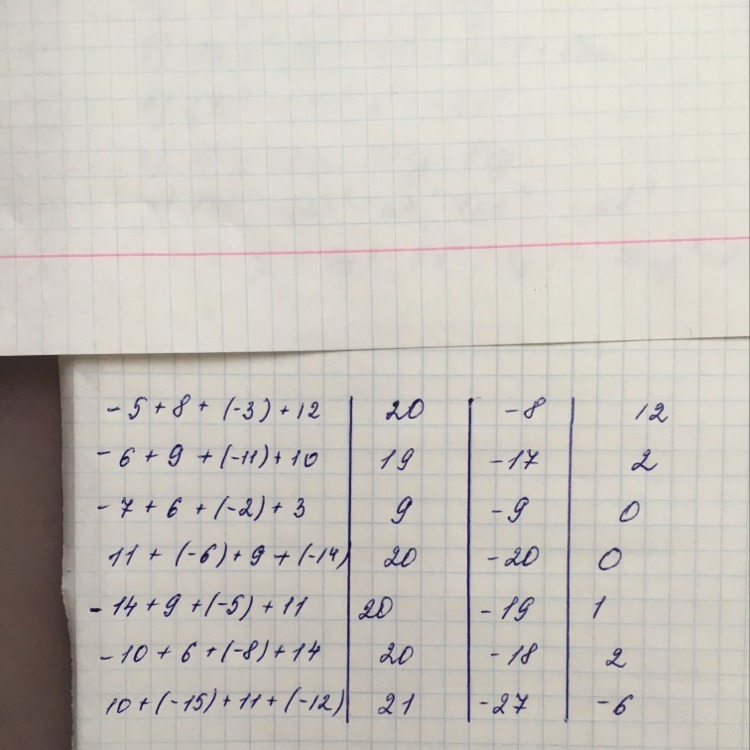 -5+8+(-3)+12 | 20 | -8 | 12
-6+9+(-11)+10 | 19 | -17 | 2
-7+6+(-2)+3 | 9 | -9 | 0
11+(-6)+9+(-14) | 20 | -20 | 0
-14+9+(-5)+11 | 20 | -19 | 1
-10+6+(-8)+14 | 20 | -18 | 2
10+(-15)+11+(-12) | 21 | -27 | -6